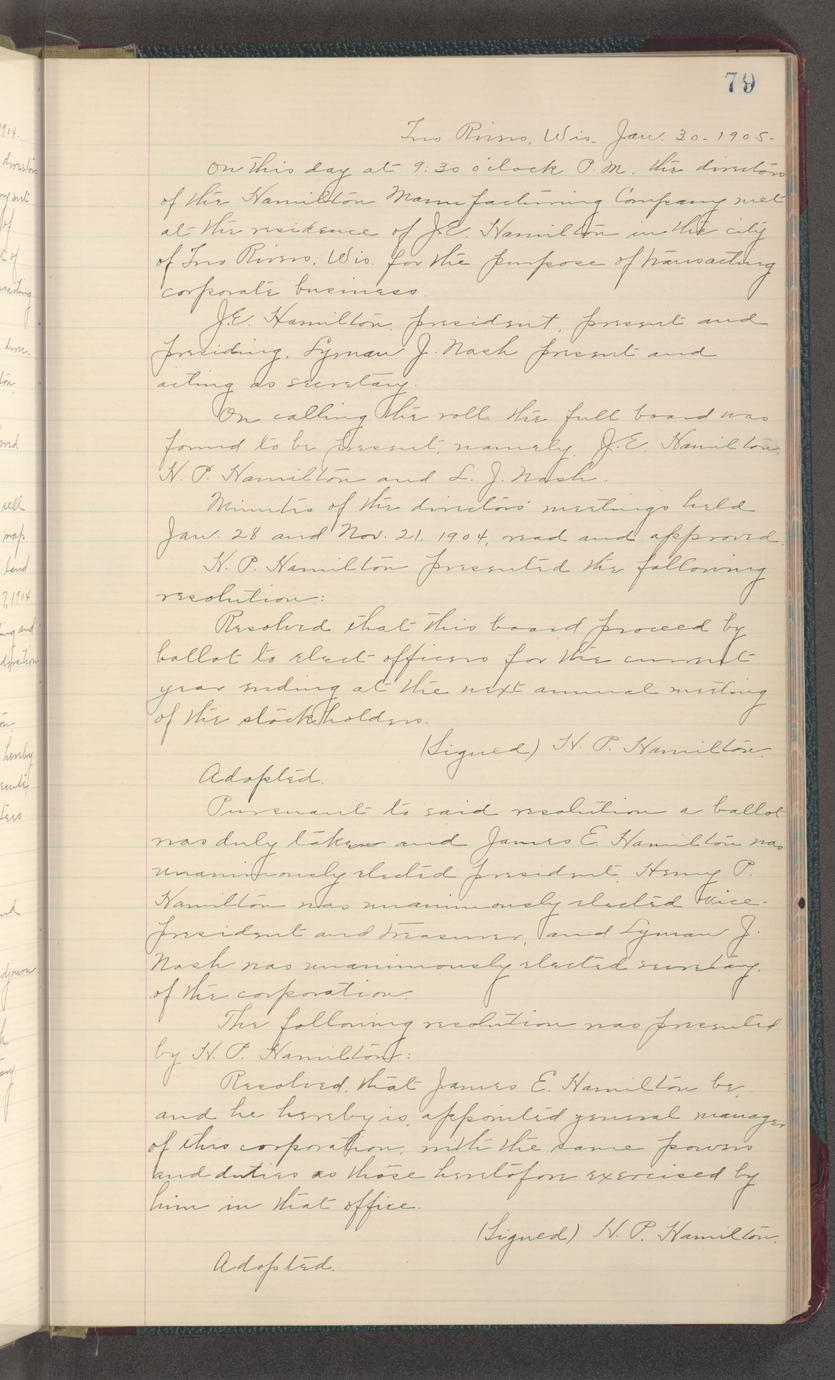 79
Two Rivers, Wis. Jan. 30-1905-
On this day at 9:30 o'clock P.M. the directors
of the Hamilton Manufacturing Company met
at the residence of J.E. Hamilton in the city
of Two Rivers, Wis. for the purpose of transacting
corporate business.
J.E. Hamilton, president, present and
presiding, Lyman J. Nash present and
acting as secretary.
On calling the roll the full board was
found to be present, namely, J.E. Hamilton,
H.P. Hamilton and L. J. Nash.
Minutes of the directors' meetings held
Jan. 28 and Nov. 21, 1904, read and approved.
H. P. Hamilton presented the following
resolution:
Resolved that this board proceed by
ballot to elect officers for the current
year ending at the next annual meeting
of the stockholders.
(Signed) H. P. Hamilton.
Adopted.
Pursuant to said resolution a ballot
was duly taken and James E. Hamilton was
unanimously elected president, Henry P.
Hamilton was unanimously elected vice-
president and treasurer, and Lyman J.
Nash was unanimously elected secretary
of the corporation.
The following resolution was presented
by H. P. Hamilton:
Resolved, that James E. Hamilton be,
and he hereby is, appointed general manager
of this corporation, with the same powers
and duties as those heretofore exercised by
him in that office.
(Signed) H. P. Hamilton.
Adopted.